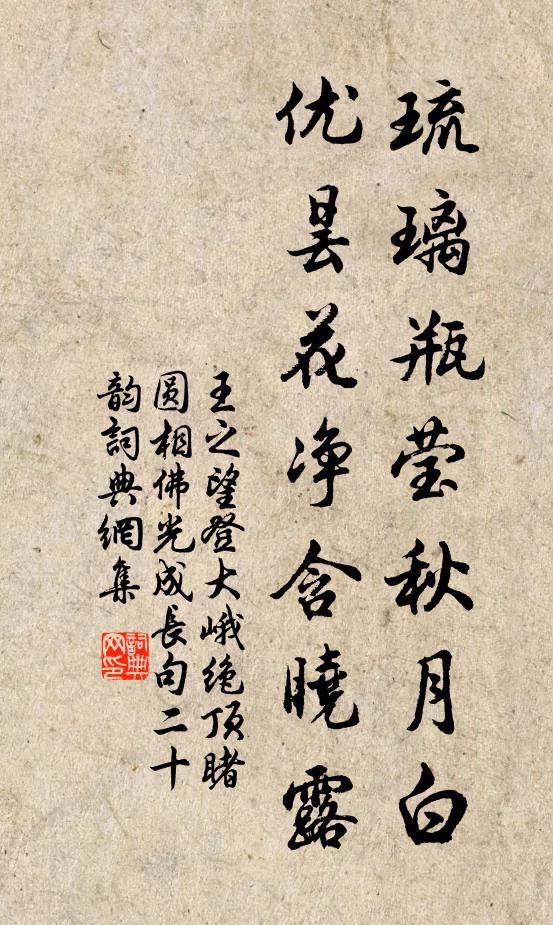 琉璃瓶莹秋月白
优昙花净含曉露
王之望登大峨绝顶睹
圆相佛光成長句二十
韵詞典網集
詞典网印